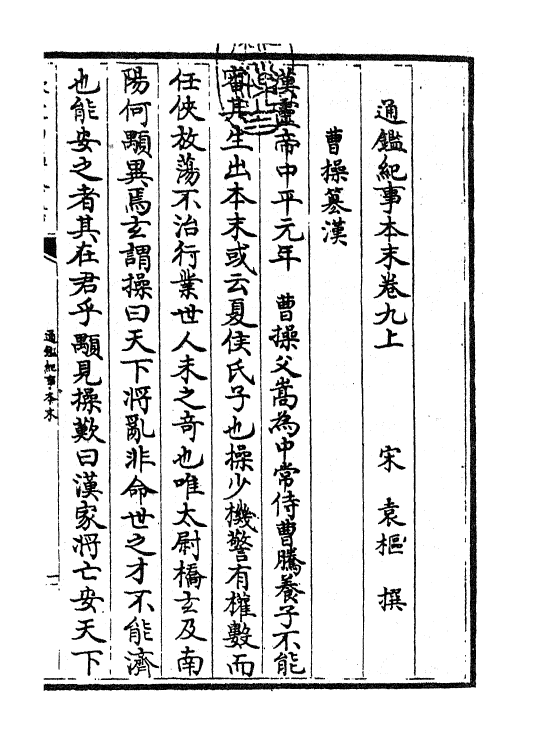 通鑑紀事本末卷九上
宋 袁樞 撰
曹操篡漢
漢靈帝中平元年 曹操父嵩為中常侍曹騰養子不能
審其生出本末或云夏侯氏子也操少機警有權數而
任俠放蕩不治行業世人未之奇也唯太尉橋玄及南
陽何顒異焉玄謂操曰天下將亂非命世之才不能濟
也能安之者其在君乎顒見操歎曰漢家將亡安天下
通鑑紀事本末